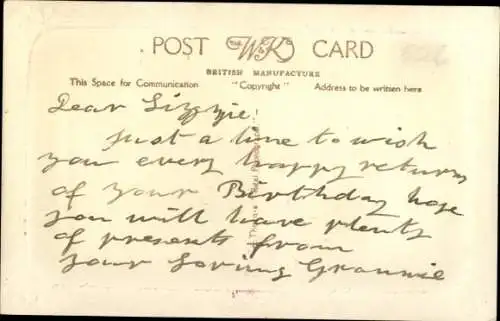 POST CARD
W & K
BRITISH MANUFACTURE
This Space for Communication "Copyright" Address to be written here
Dear Lizzie
Just a line to wish
you every happy returns
of your Birthday hope
you will have plenty
of presents from
your loving Grannie